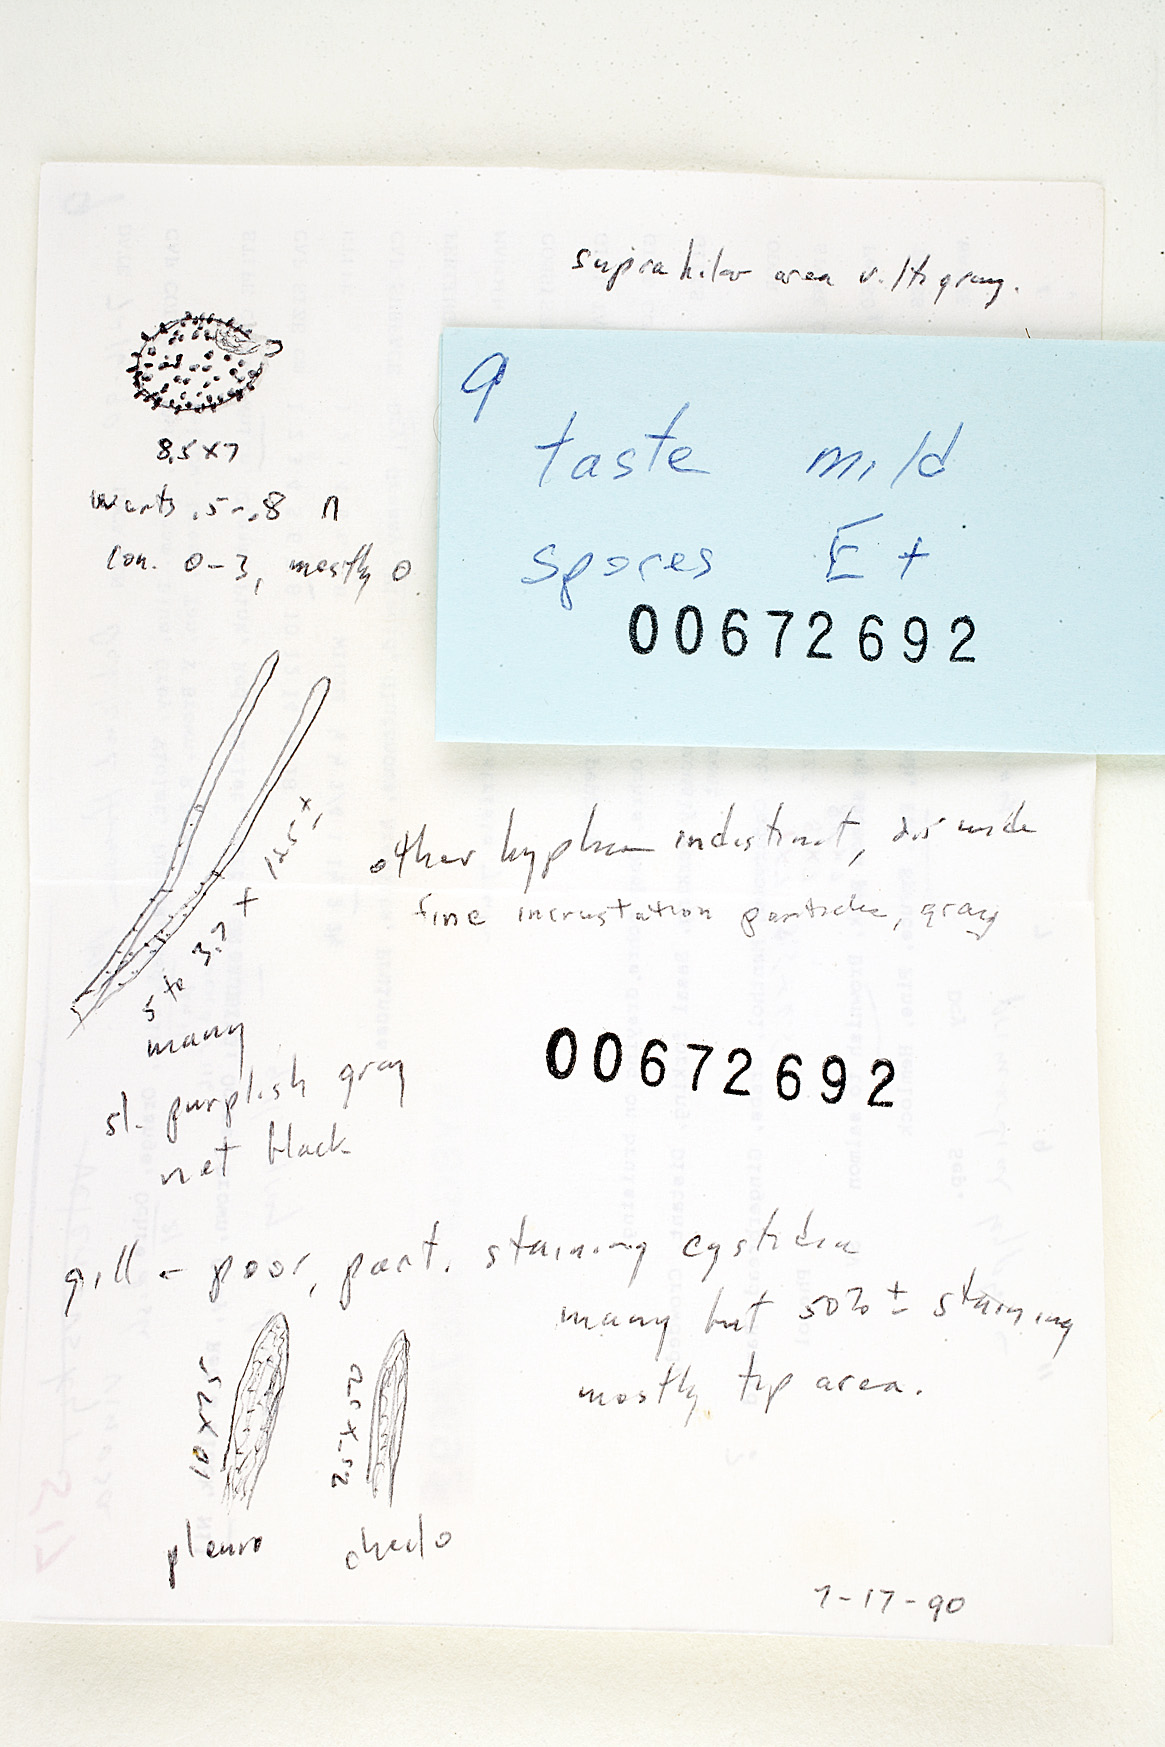 suprahilar area v. lt. gray.
9
taste mild
spores E+
00672692
8.5 x 7
warts .5-.8 n
con. 0-3, mostly 0
5 to 3.7 + 125 x
many
sl. purplish gray
not black
other hyphae indistinct, wide
fine incrustation particles, gray
00672692
gill - poor, part. staining cystidia
many but 50% ± staining
mostly top area.
52 x 10
pleuro
cheilo
7-17-90